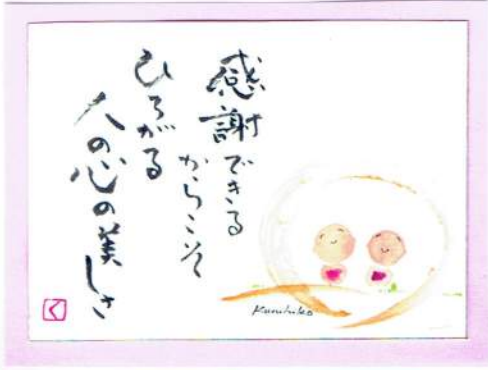 感謝できる
からこそ
ひろがる
人の心の美しさ
Kunihiko
く